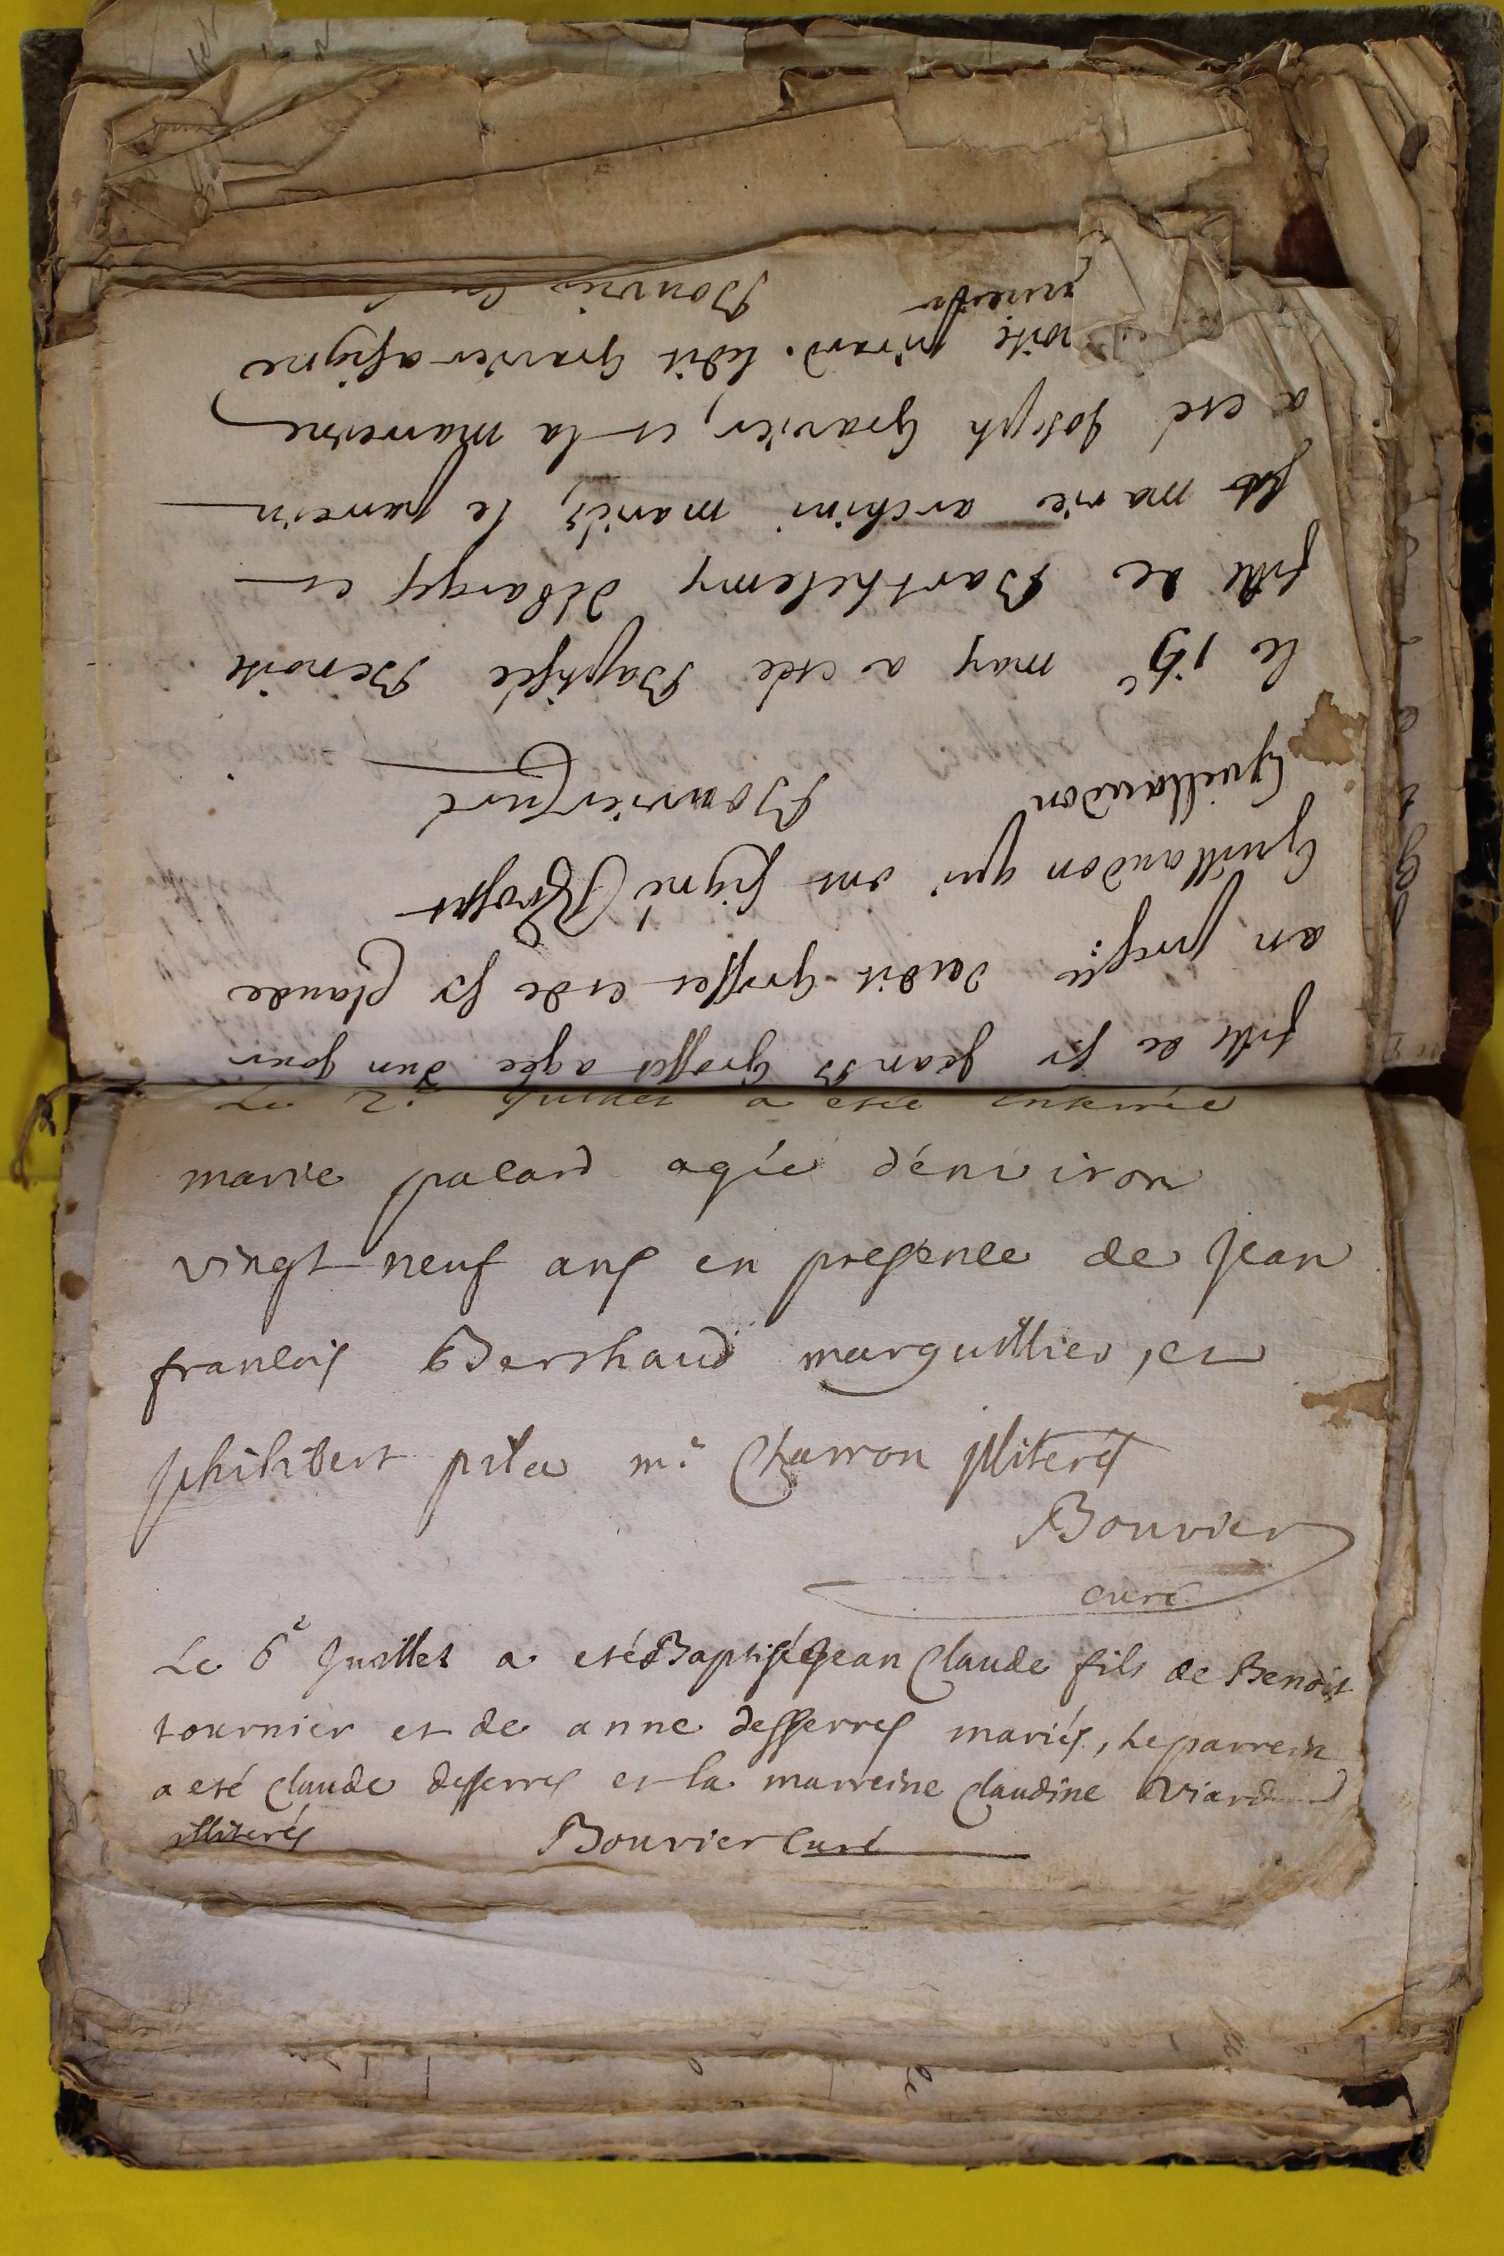 fille de sr jean B Grosset agée d'un jour
en presce dudit Grosset et de sr Claude
Guillaudon qui ont signé Grosset
Guillaudon Bouvier Curé
le 15e may a eté Baptisée Benoite
fille de Barthelemy debarges et
de marie archini mariés, le parrein
a eté joseph Gravier, et la marreine
ledit Gravier a signé
Bouvier
Le 2e Juillet a eté enterrée
marie palard agée dénviron
vingt neuf ans en presence de Jean
francois Berthaud marguillier, et
philibert pila me Charron illiterés
Bouvier
curé
Le 6e Juillet a eté Baptisé Jean Claude fils de Benoit
tournier et de anne desserres mariés, le parrein
a eté Claude desserres et la marreine Claudine Viard
illiterés Bouvier Curé